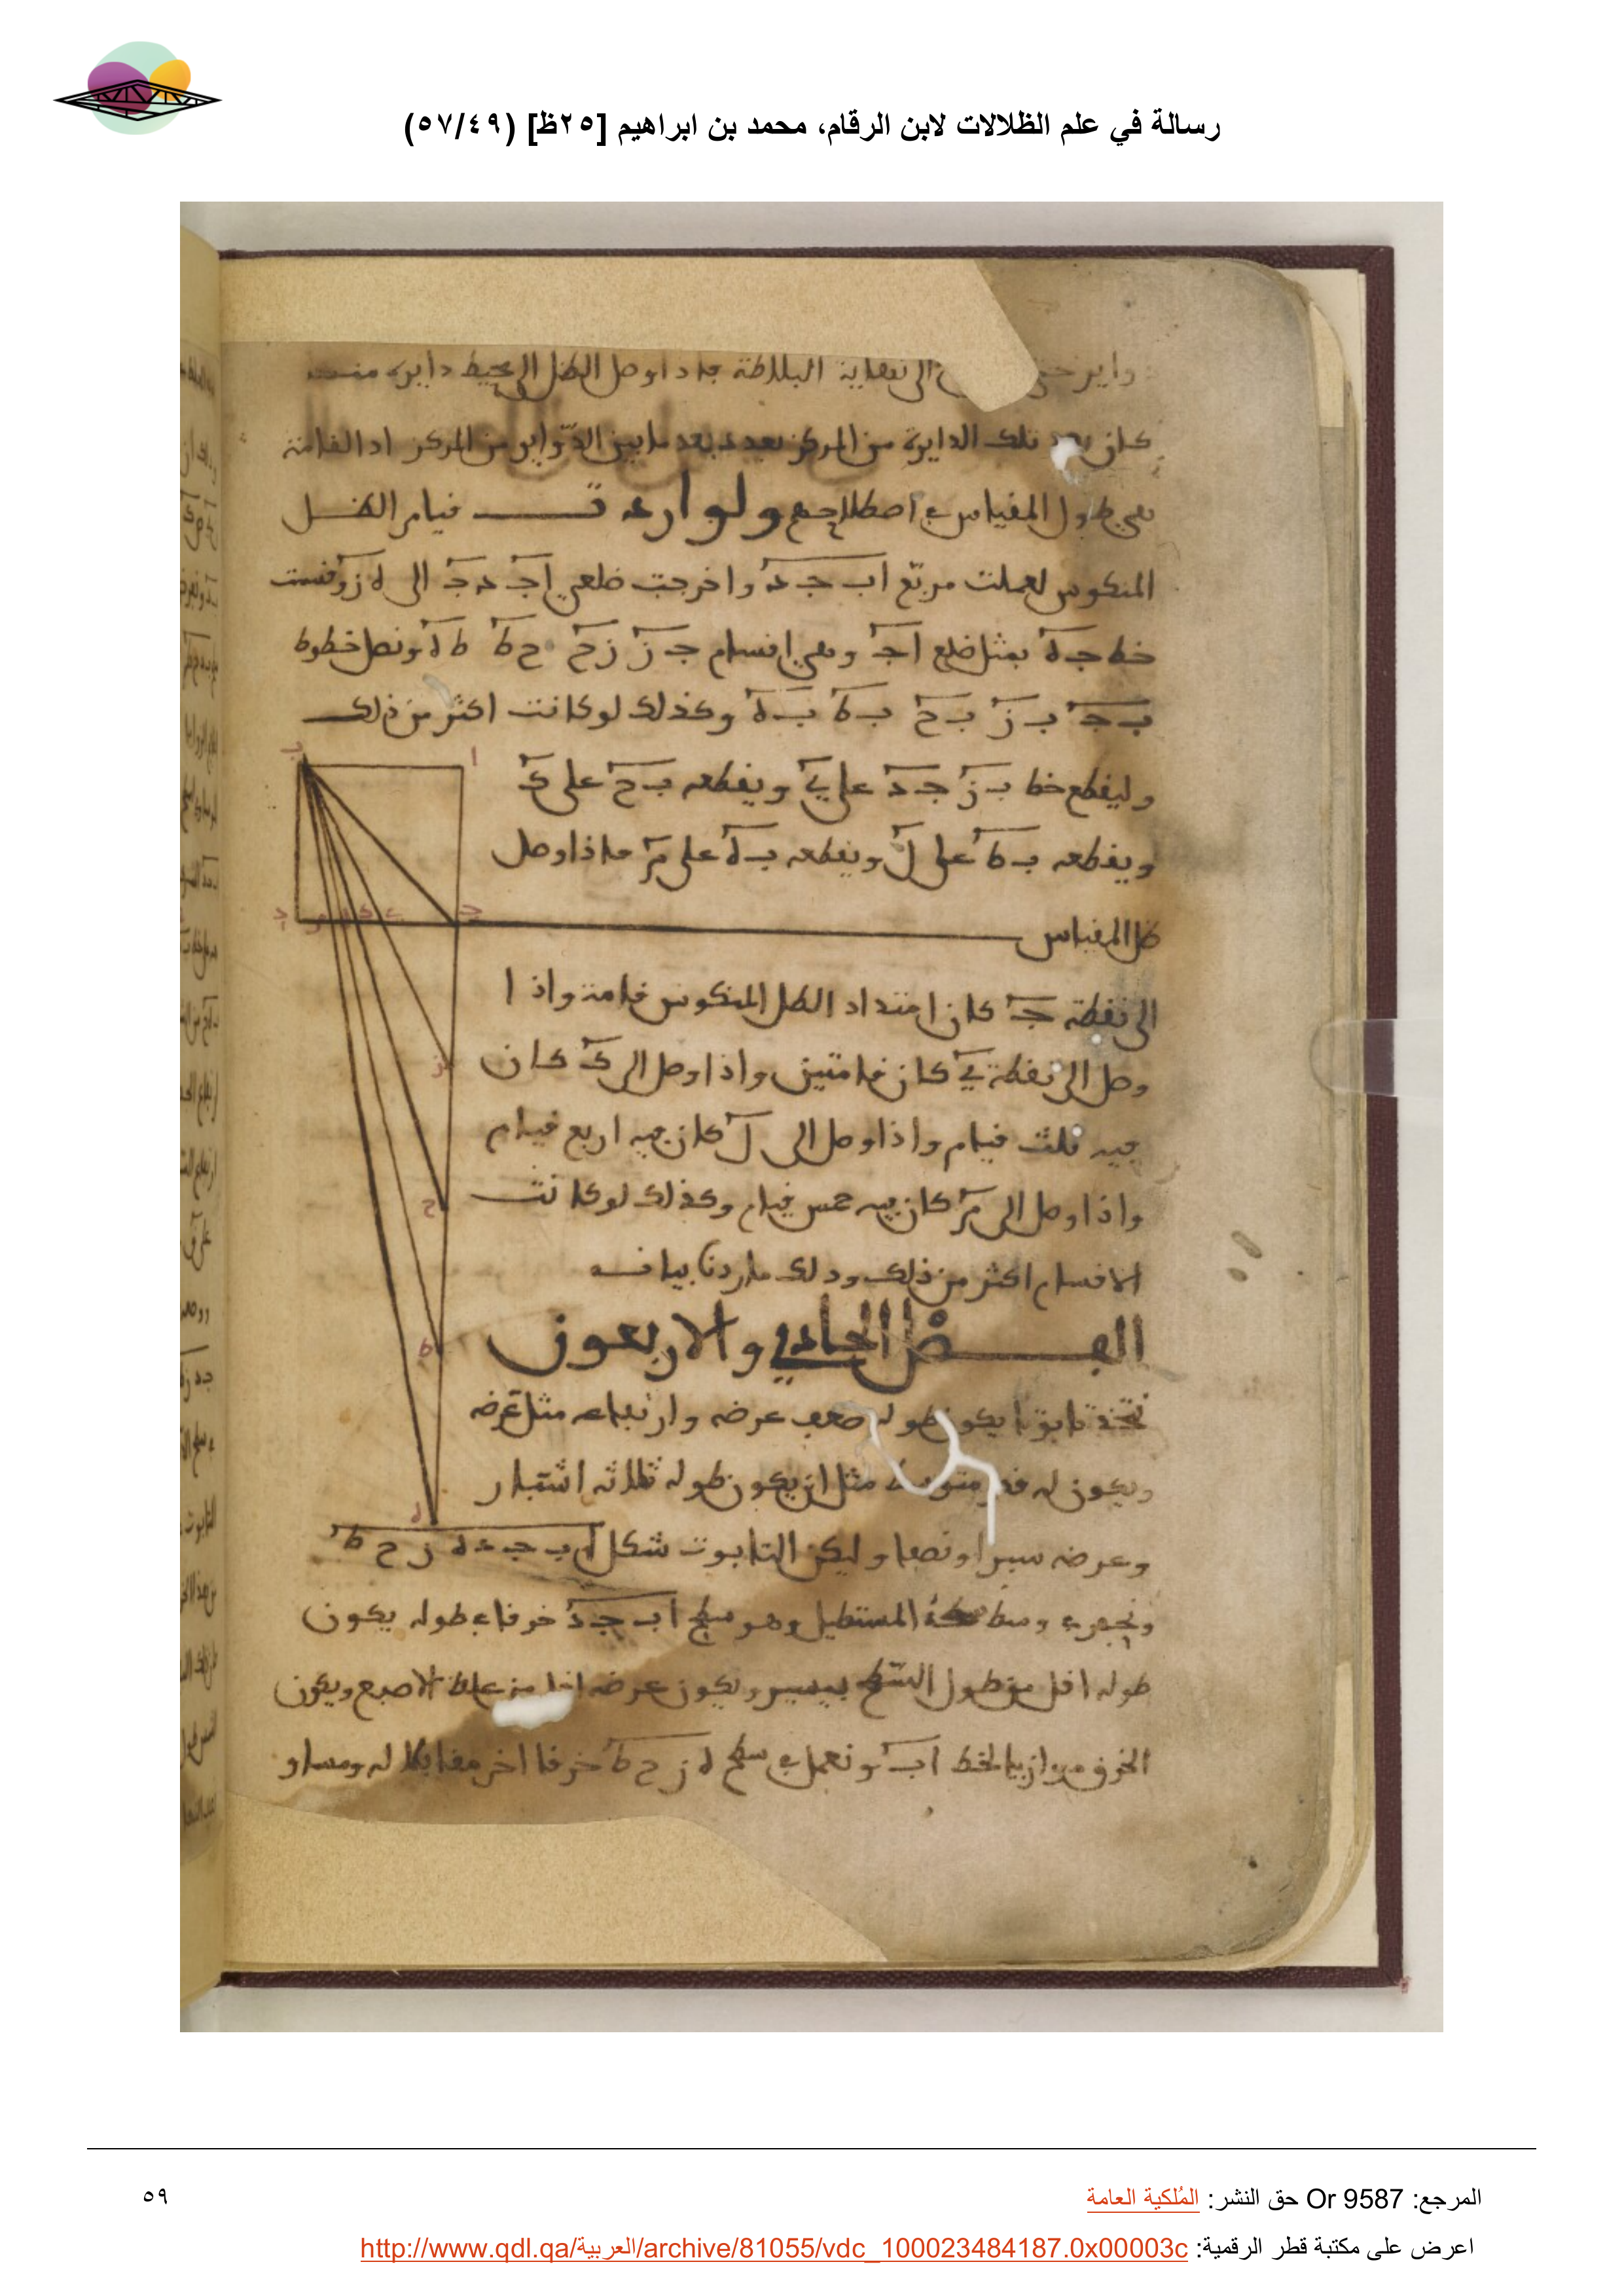 رسالة في علم الظلالات لابن الرقام، محمد بن ابراهيم [٢٥ظ] (٥٧/٤٩)
الى نهاية البلاطة فاذا وصل الظل الى محيط دايرة منها
كان بعد تلك الدايرة من المركز بعدد بعد ما بين الدواير من المركز اذ القامة
هي طول المقياس في اصطلاحهم ولو اردت قيام الظل
المنكوس لعملت مربع اب جد واخرجت ضلعي اج دج الى ه ز وقسمت
خط جه بمثل ضلع اج وهي اقسام جز زح ح ط ط ه ونصل خطوط
ب ج ب ز ب ح ب ط ب ه وكذلك لو كانت اكثر من ذلك
وليقطع خط ب ز جد على ي ويقطعه ب ح على ك
ويقطعه ب ط على ل ويقطعه ب ه على م فاذا وصل
ظل المقياس
الى نقطة ج كان امتداد الظل المنكوس قامة واذا
وصل الى نقطة ي كان قامتين واذا وصل الى ك كان
فيه ثلث قيام واذا وصل الى ل كان فيه اربع قيام
واذا وصل الى م كان فيه خمس قيام وكذلك لو كانت
الاقسام اكثر من ذلك وذلك ما اردنا بيانه
الفصل الحادي والاربعون
نتخذ تابوتا يكون طوله ضعف عرضه وارتفاعه مثل عرضه
ويكون له قدر متوسط مثل ان يكون طوله ثلاثة اشبار
وعرضه شبرا ونصفا وليكن التابوت شكل اب جد ه ز ح ط
ونحفر في وسط المستطيل وهو سطح اب جد خرقا في طوله يكون
طوله اقل من طول السطح بيسير ويكون عرضه اقل من غلظ الاصبع ويكون
الخرق موازيا لخط اب ونعمل في سطح ه ز ح ط خرقا اخر مقابلا له ومساو
ا
ب
ج
د
ي
ك
ل
م
ز
ح
ط
ه
المرجع: Or 9587 حق النشر: المُلكية العامة
٥٩
اعرض على مكتبة قطر الرقمية: http://www.qdl.qa/العربية/archive/81055/vdc_100023484187.0x00003c